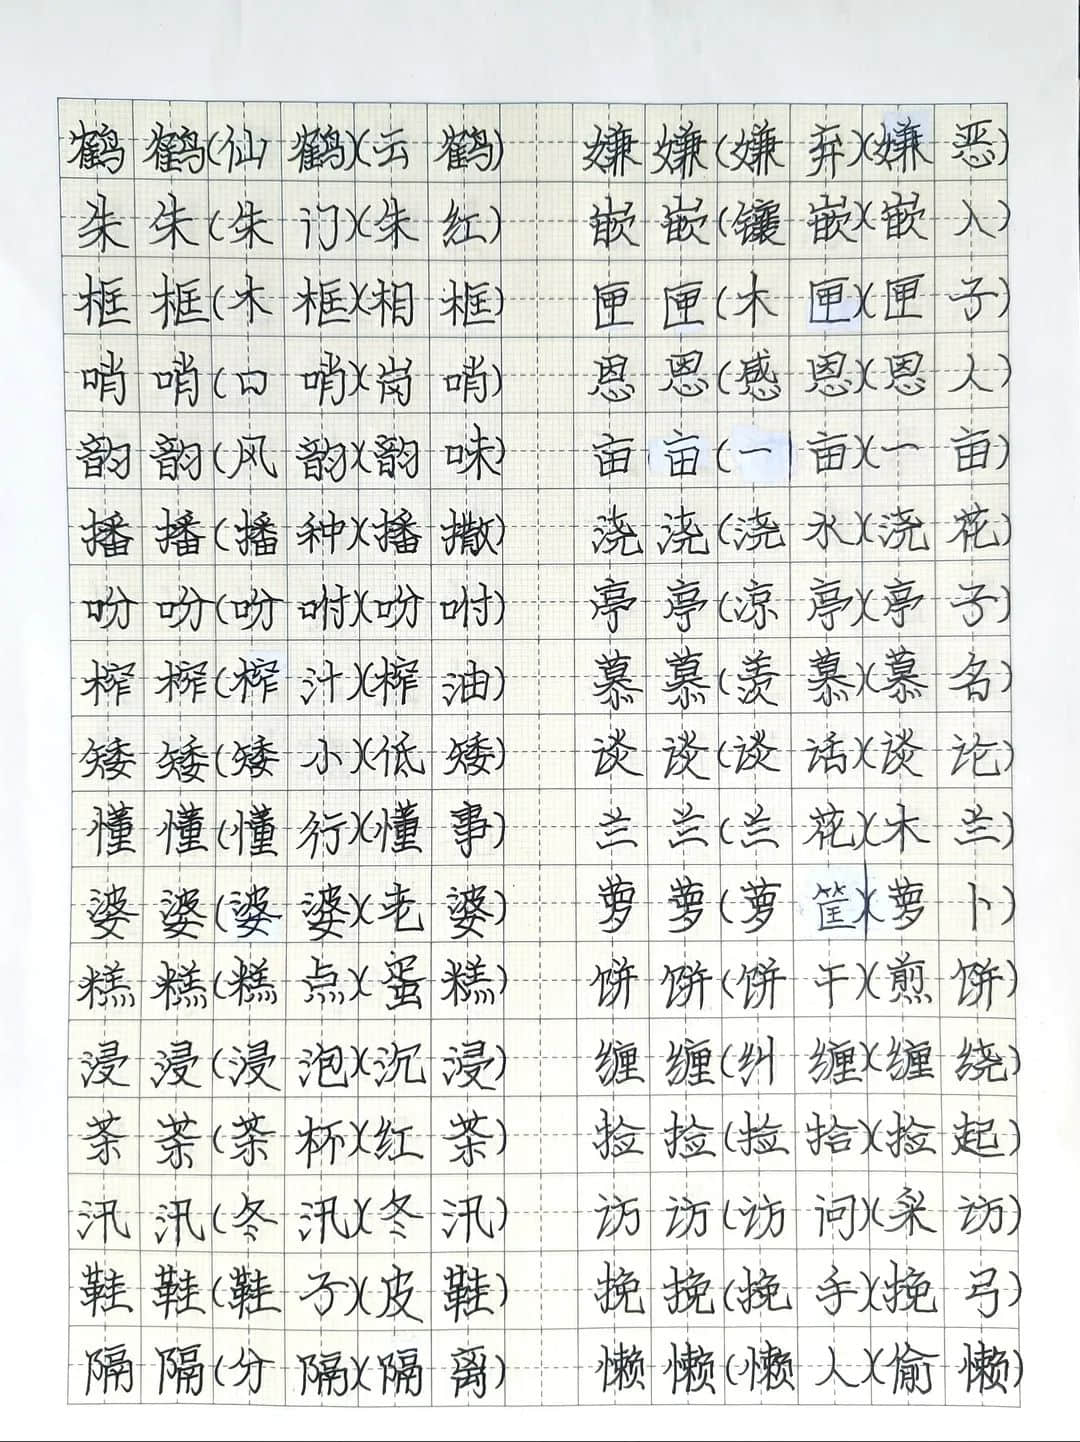 鹤鹤(仙鹤)(云鹤) 嫌嫌(嫌弃)(嫌恶)
朱朱(朱门)(朱红) 嵌嵌(镶嵌)(嵌入)
框框(木框)(相框) 匣匣(木匣)(匣子)
哨哨(口哨)(岗哨) 恩恩(感恩)(恩人)
韵韵(风韵)(韵味) 亩亩(一亩)(一亩)
播播(播种)(播撒) 浇浇(浇水)(浇花)
吩吩(吩咐)(吩咐) 亭亭(凉亭)(亭子)
榨榨(榨汁)(榨油) 慕慕(羡慕)(慕名)
矮矮(矮小)(低矮) 谈谈(谈话)(谈论)
懂懂(懂行)(懂事) 兰兰(兰花)(木兰)
婆婆(婆婆)(老婆) 萝萝(萝筐)(萝卜)
糕糕(糕点)(蛋糕) 饼饼(饼干)(煎饼)
浸浸(浸泡)(沉浸) 缠缠(纠缠)(缠绕)
茶茶(茶杯)(红茶) 捡捡(捡拾)(捡起)
汛汛(冬汛)(冬汛) 访访(访问)(采访)
鞋鞋(鞋子)(皮鞋) 挽挽(挽手)(挽弓)
隔隔(分隔)(隔离) 懒懒(懒人)(偷懒)